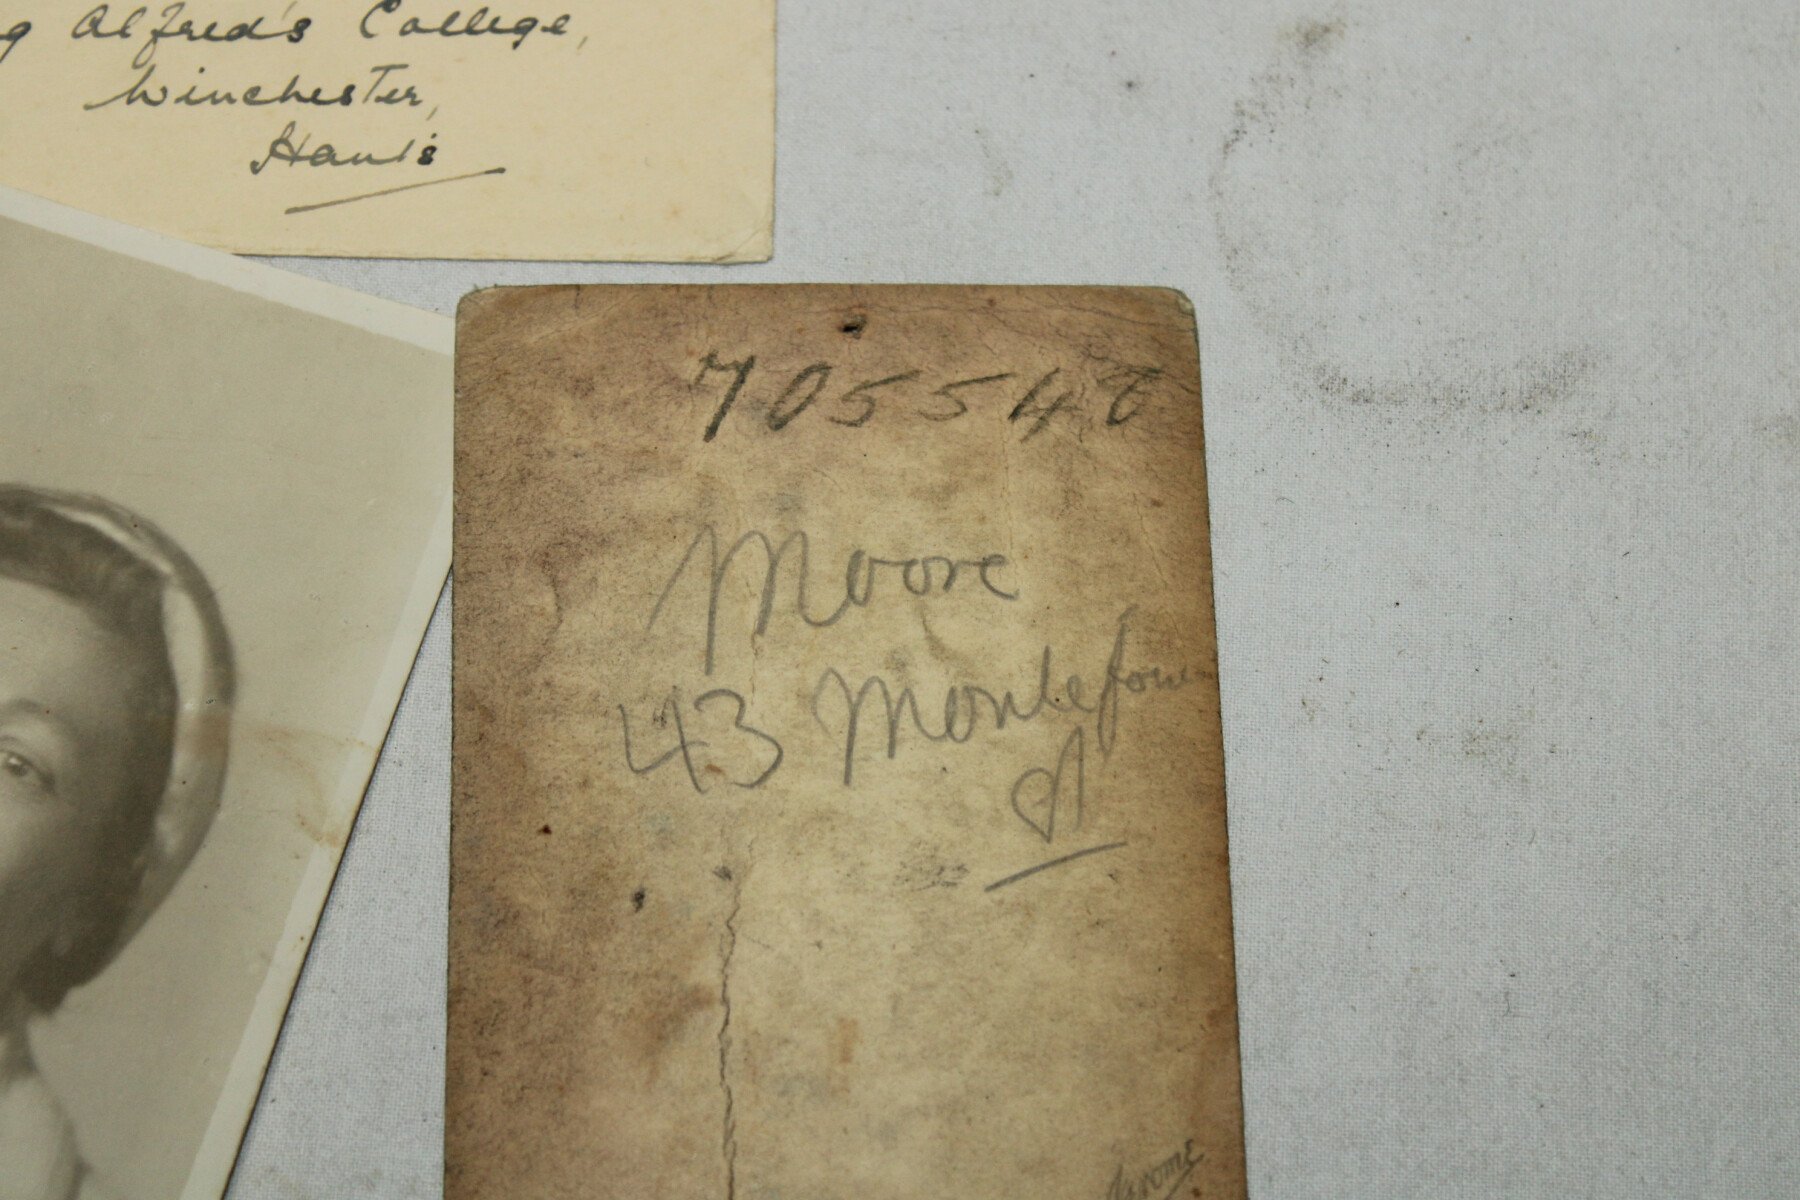 Alfred's College,
Winchester,
Hants
705548
Moore
43 Montefiore
St
Jerome